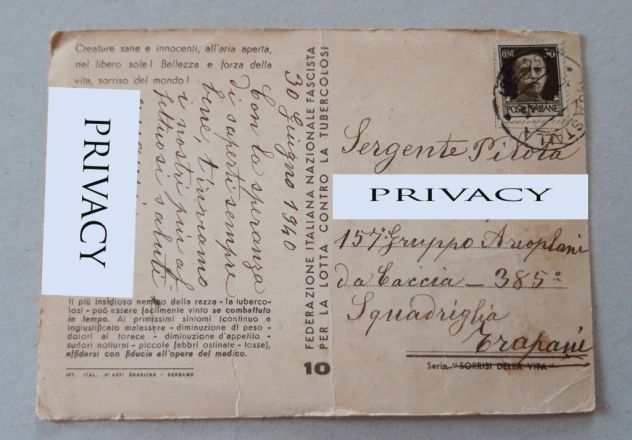 Creature sane e innocenti, all'aria aperta,
nel libero sole! Bellezza e forza della
vita, sorriso del mondo!
PRIVACY
30 Giugno 1940
Con la speranza
di saperti sempre
bene, t'inviamo
i nostri più af
fettuosi saluti
Il più insidioso nemico della razza - la tuberco-
losi - può essere facilmente vinto se combattuto
in tempo. Ai primissimi sintomi (continuo e
ingiustificato malessere - diminuzione di peso -
dolori al torace - diminuzione d'appetito -
sudori notturni - piccole febbri ostinate - tosse),
affidarsi con fiducia all'opera del medico.
IST. ITAL. D'ARTI GRAFICHE - BERGAMO
FEDERAZIONE ITALIANA NAZIONALE FASCISTA
PER LA LOTTA CONTRO LA TUBERCOLOSI
10
POSTE ITALIANE
Sergente Pilota
PRIVACY
157° Gruppo Aeroplani
da Caccia - 385ª
Squadriglia
Trapani
Serie "SORRISI DELLA VITA"